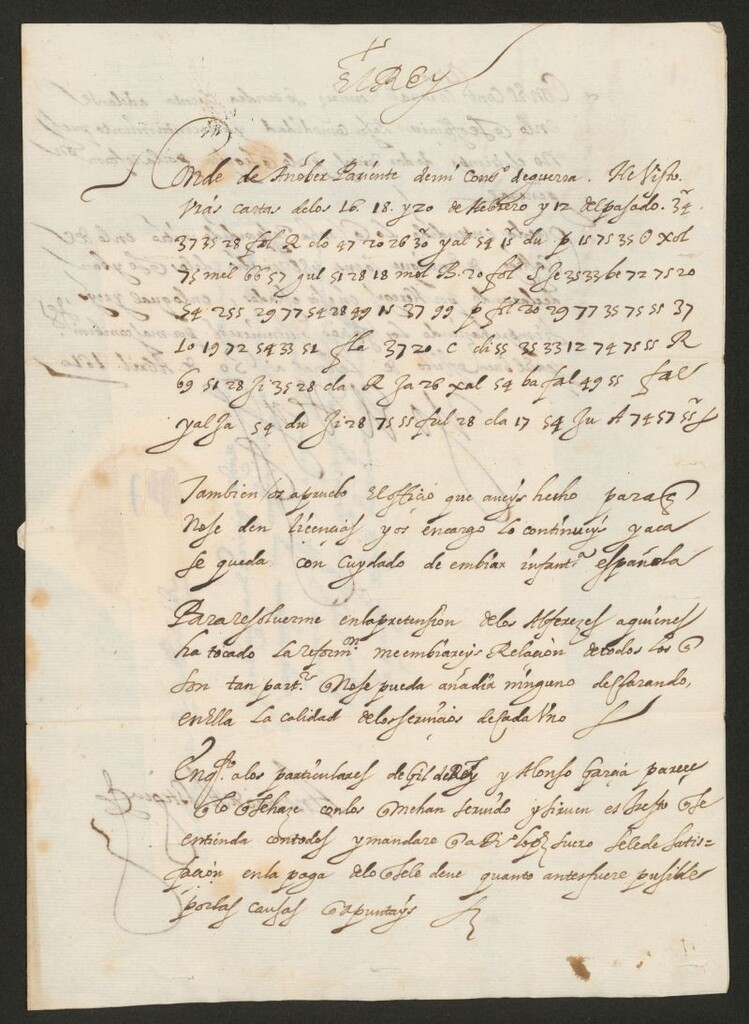 El Rey
Conde de Añober Pariente demi Cons.º deguerra. He Visto
Vrãs cartas delos 16. 18. y 20 de Hebrero y 12 delpasado. 34.
37 35 28 fol R clo 47 20 26 30 yal 54 15 du p 15 75 35 O xol
75 mil 66 57 gul 51 28 18 mol B. 20 fol S Je 35 33 be 72 75 20
54 255 29 77 54 28 49 15 37 99 p fl 20 29 77 35 75 55 37
Lo 19 72 54 33 51 fla 37 20 c di 55 35 33 12 74 75 55 R
69 51 28 Ji 35 28 cla R Ja 26 xal 54 ba fal 49 55 fal
yal Ja 54 du Ji 28 75 55 ful 28 cla 17 54 Ju A 74 57 55
Tambien os apruebo El officio que aueys hecho para q
Nose den licencias y os encargo lo continueys yaca
se queda con Cuydado de embiar infant.ª española
Pararesoluerme enlapretension delos Alferezes aquienes
ha tocado La reform.on meembiareys Relacion detodos los q
son tan part.r Nose pueda añadir ninguno declarando,
enElla La calidad delosseruicios decada Uno
Enq.to alos particulares deGil de y Alonso Garcia parece
q Lo q sehaze conlos q mehan seruido y siruen es Justo q se
entienda contodos y mandare q a su fuero selede satis=
facion enla paga delo q sele deue quanto antesfuere pusible
porlas causas q apuntays